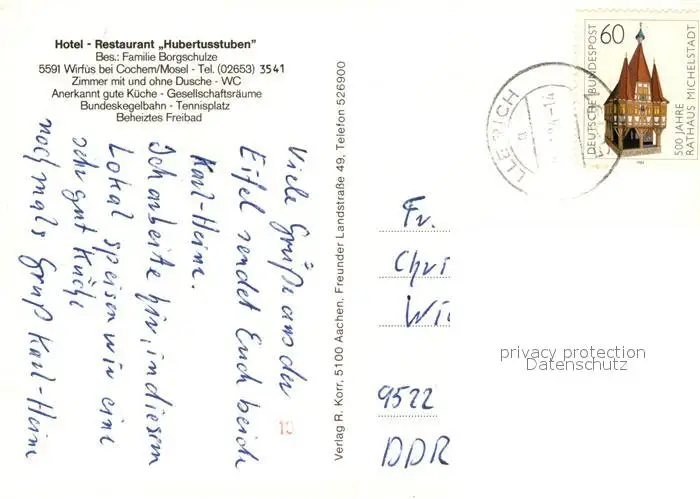 Hotel - Restaurant „Hubertusstuben"
Bes.: Familie Borgschulze
5591 Wirfus bei Cochem/Mosel - Tel. (02653) 3541
Zimmer mit und ohne Dusche - WC
Anerkannt gute Küche - Gesellschaftsräume
Bundeskegelbahn - Tennisplatz
Beheiztes Freibad
Viele Grüße aus der
Eifel sendet Euch beide
Karl-Heinz.
Ich arbeite hir, in diesem
Lokal speisen wir eine
sehr gut Küche
nochmals Gruß Karl-Heinz
10
Verlag R. Korr, 5100 Aachen, Freunder Landstraße 49, Telefon 526900
60
DEUTSCHE BUNDESPOST
500 JAHRE
RATHAUS MICHELSTADT
1984
LLERICH
a
Fr.
Chri
Wi
9522
DDR
privacy protection
Datenschutz